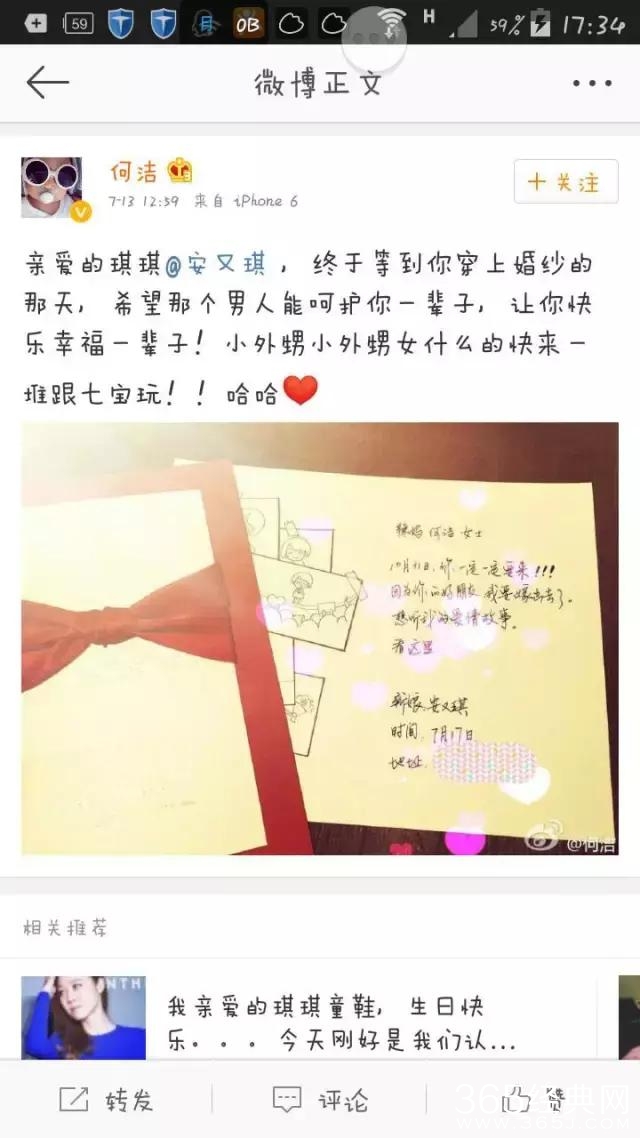 59
OB
H
59%
17:34
微博正文
何洁
+关注
7-13 12:59 来自 iPhone 6
亲爱的琪琪@安又琪，终于等到你穿上婚纱的
那天，希望那个男人能呵护你一辈子，让你快
乐幸福一辈子！小外甥小外甥女什么的快来一
堆跟七宝玩！！哈哈
辣妈 何洁 女士
你一定一定要来!!!
因为你的好朋友 我要嫁出去了。
想听我的爱情故事。
看这里
新娘:安又琪
时间: 7月17日
地址:
@何洁
相关推荐
NTH
我亲爱的琪琪童鞋，生日快
乐。。。今天刚好是我们认...
转发
评论
赞
365经典网